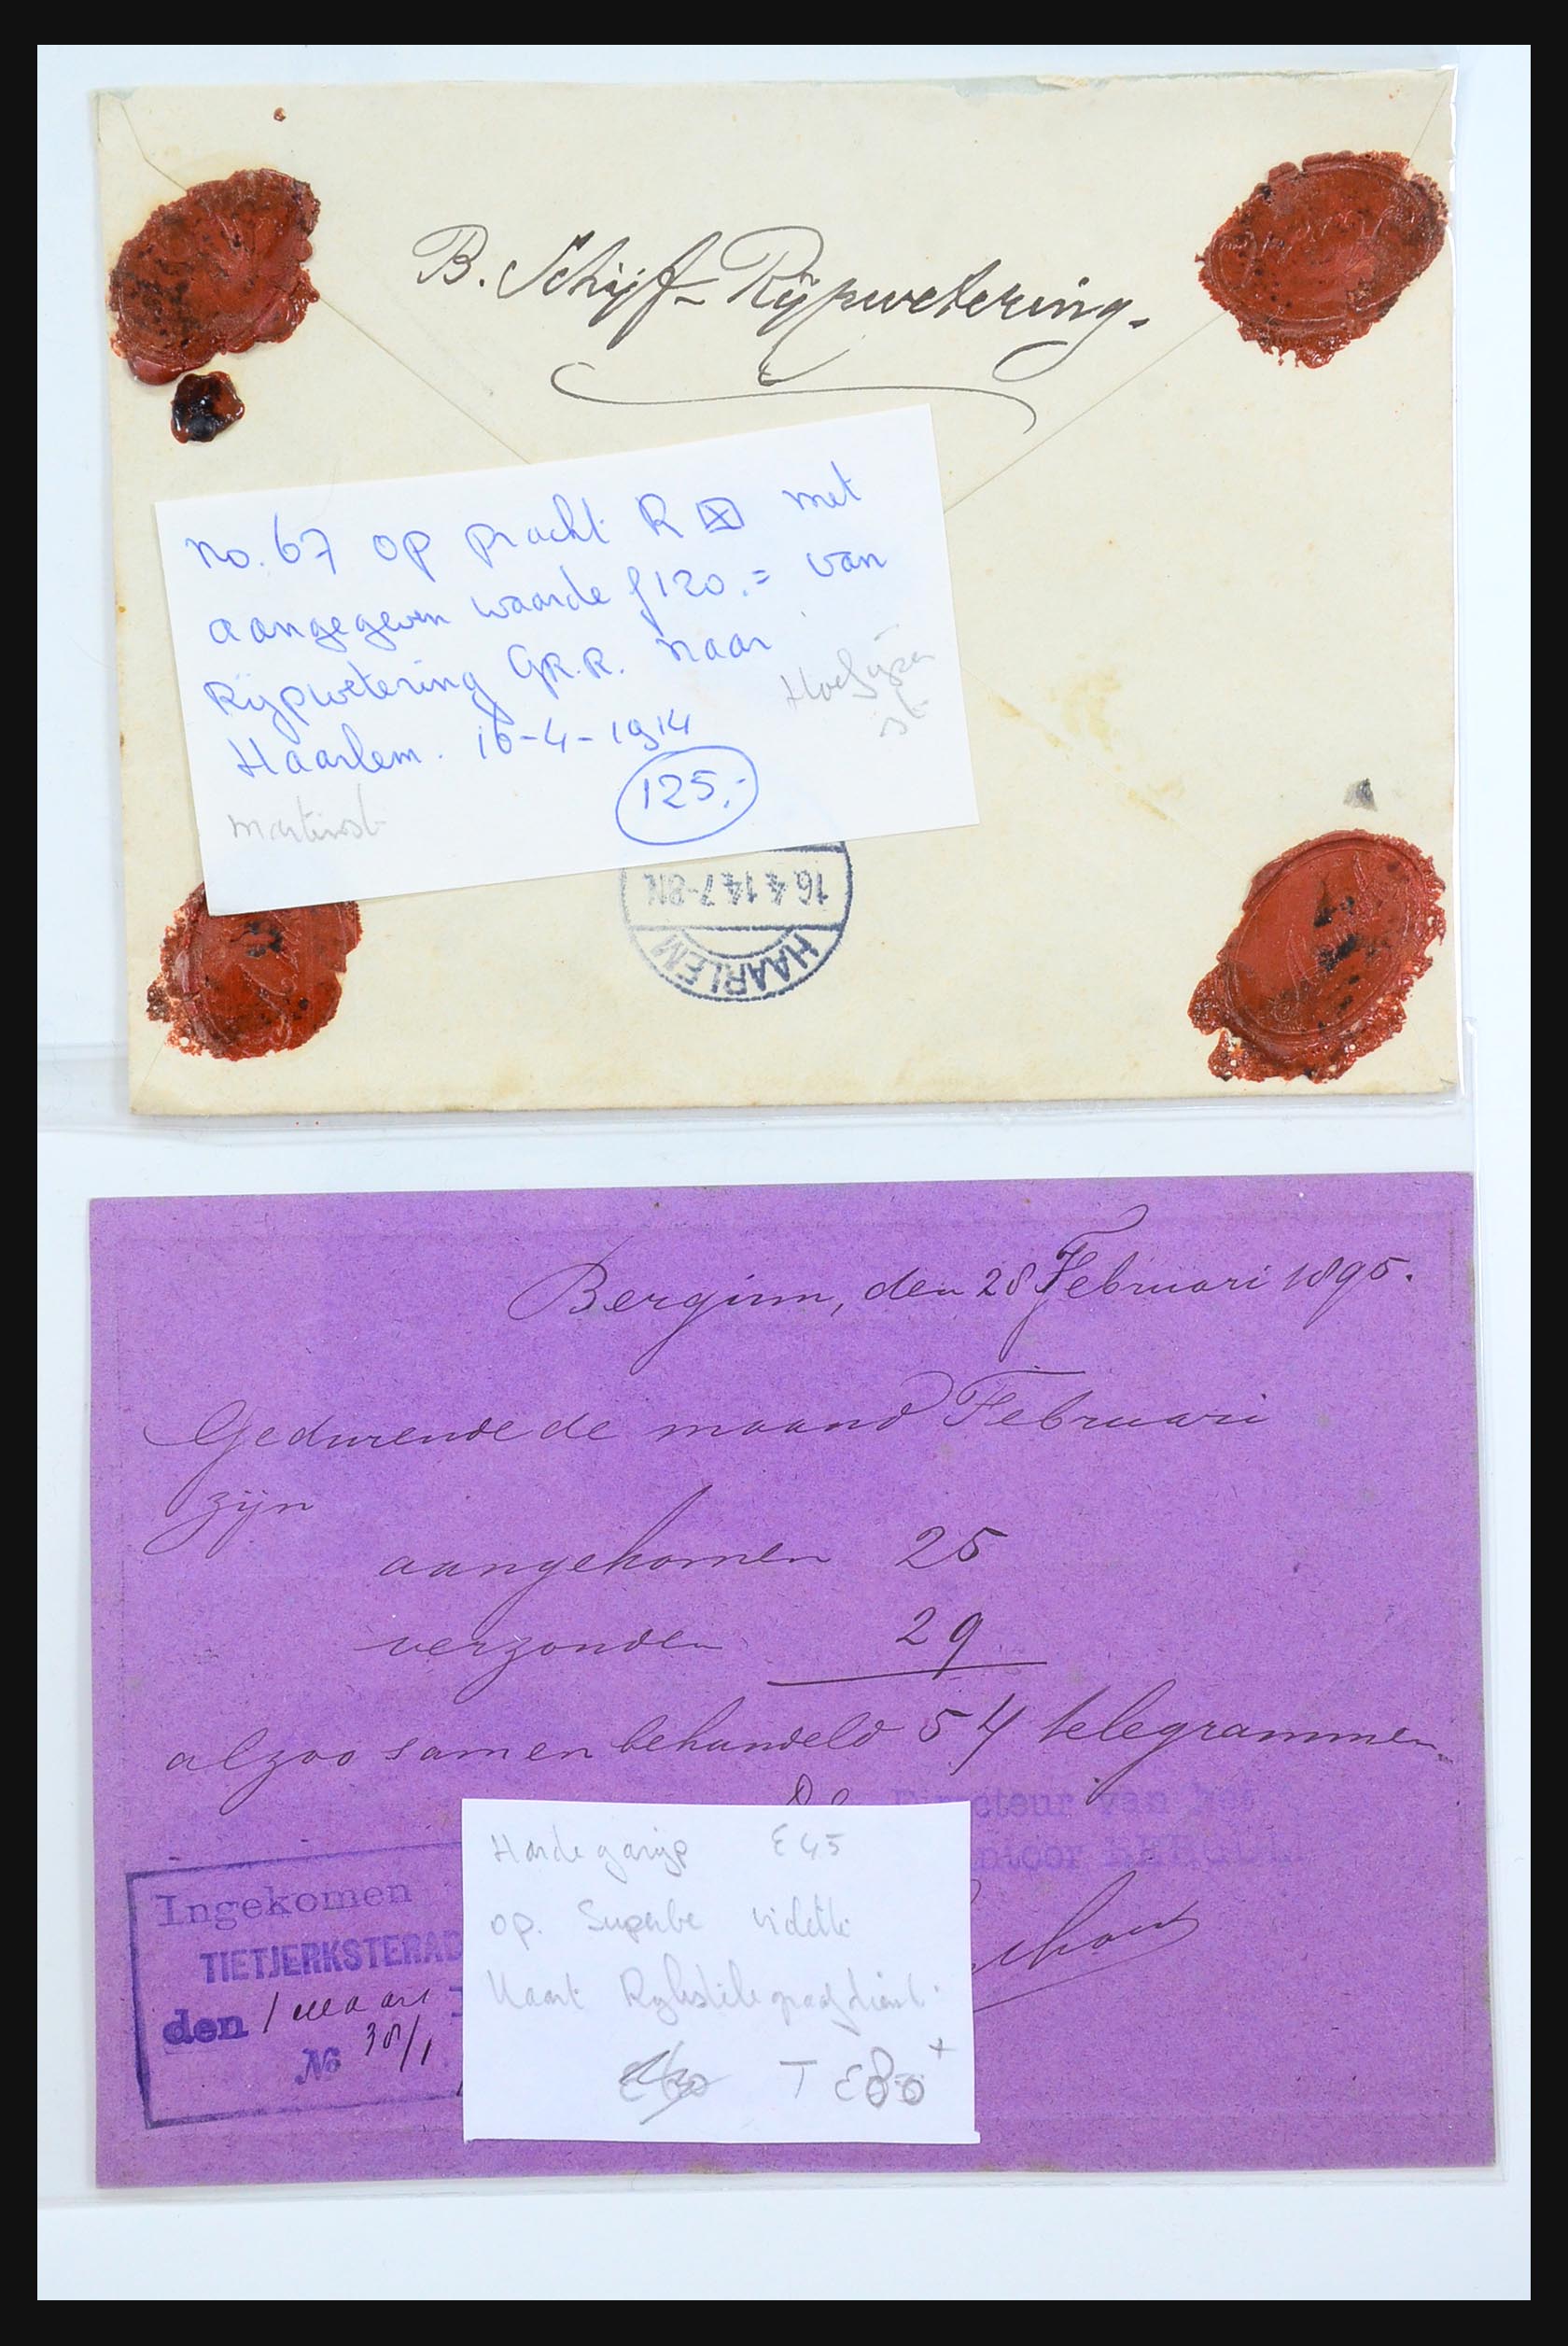 B. Schijf - Rijpwetering.
no. 67 op pracht R ☒ met
aangegeven waarde f120.= van
Rijpwetering GR.R. naar
Haarlem. 16-4-1914
125,-
16.4.14.7-8N
HAARLEM
Bergum, den 28 Februari 1895.
Gedurende de maand Februari
zijn
aangekomen 25
verzonden 29
alzoo samen behandeld 54 telegrammen
De Directeur van het
ntoor BERGUM
Ingekomen
TIETJERKSTERAD
den 1 maart 1
No 38/1
Hardegarijp £45
op. Superbe violette
Kaart Rijkstelegraafdienst.
T £80+